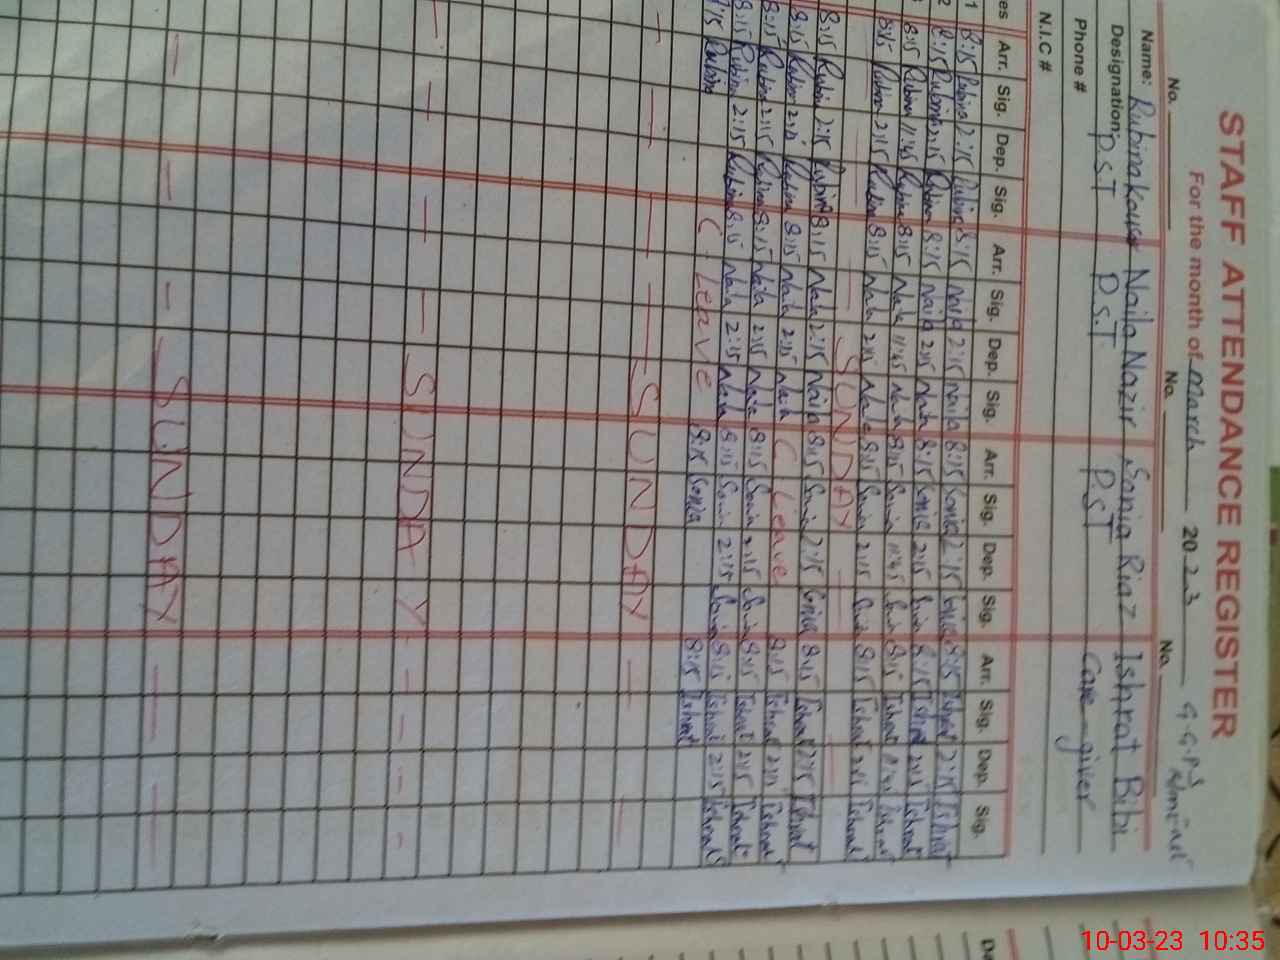 STAFF ATTENDANCE REGISTER
For the month of March 2023 G.G.P.S
No. No. No.
Name: Rubina Kousar Naila Nazir Sonia Riaz Ishrat Bibi
Designation: P.S.T P.S.T P.S.T Care giver
Phone #
N.I.C #
es Arr. Sig. Dep. Sig. Arr. Sig. Dep. Sig. Arr. Sig. Dep. Sig. Arr. Sig. Dep. Sig.
1 8:15 Rubina 2:15 Rubina 8:15 Naila 2:15 Naila 8:15 Sonia 2:15 Sonia 8:15 Ishrat 2:15 Ishrat
2 8:15 Rubina 2:15 Rubina 8:15 Naila 2:15 Naila 8:15 Sonia 2:15 Sonia 8:15 Ishrat 2:15 Ishrat
8:15 Rubina 11:45 Rubina 8:15 Naila 11:45 Naila 8:15 Sonia 11:45 Sonia 8:15 Ishrat 11:45 Ishrat
8:15 Rubina 2:15 Rubina 8:15 Naila 2:15 Naila 8:15 Sonia 2:15 Sonia 8:15 Ishrat 2:15 Ishrat
SUNDAY
8:15 Rubina 2:15 Rubina 8:15 Naila 2:15 Naila 8:15 Sonia 2:15 Sonia 8:15 Ishrat 2:15 Ishrat
8:15 Rubina 2:15 Rubina 8:15 Naila 2:15 Naila C Leave 8:15 Ishrat 2:15 Ishrat
8:15 Rubina 2:15 Rubina 8:15 Naila 2:15 Naila 8:15 Sonia 2:15 Sonia 8:15 Ishrat 2:15 Ishrat
8:15 Rubina 2:15 Rubina 8:15 Naila 2:15 Naila 8:15 Sonia 2:15 Sonia 8:15 Ishrat 2:15 Ishrat
8:15 Rubina C. Leave 8:15 Sonia 8:15 Ishrat
SUNDAY
SUNDAY
SUNDAY
10-03-23 10:35